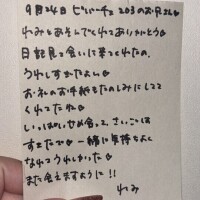 9月24日 ビいーチェ 203のお兄さん♡
れみとあそんでくれてありがとう♡
日記見て会いに来てくれたの、
うれしすぎたよぃ♡
お礼のお手紙もたのしみにしてて
くれてたね♡
いっぱいせめ合って、さいごは
すまたで♡ 一緒に気持ちよく
なれてうれしかった♡
また会えますように!!
れみ